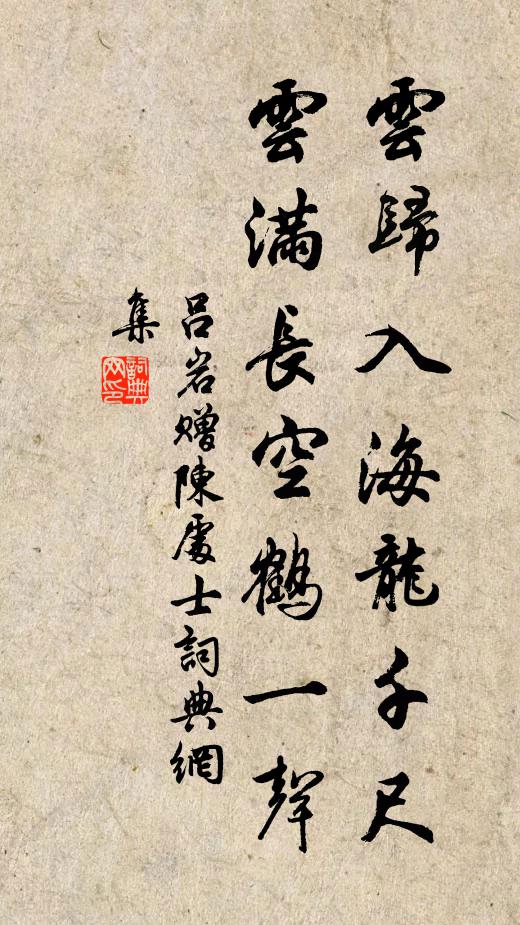 雲歸入海龍千尺
雲滿長空鶴一聲
呂岩贈陳處士詞典網
集
詞典网印